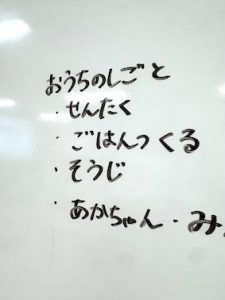 おうちのしごと
・せんたく
・ごはんつくる
・そうじ
・あかちゃん・み